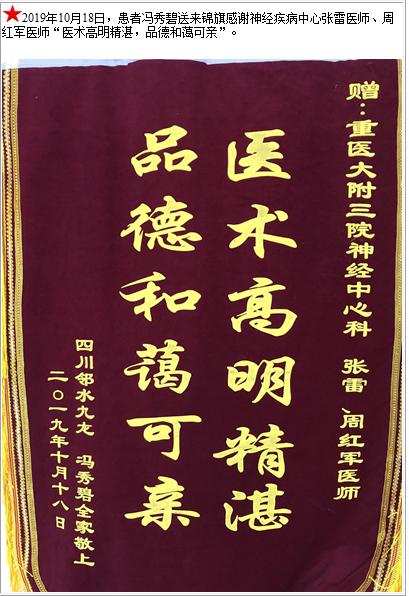 2019年10月18日，患者冯秀碧送来锦旗感谢神经疾病中心张雷医师、周
红军医师“医术高明精湛，品德和蔼可亲”。
赠：重医大附三院神经中心科 张雷、周红军医师
医术高明精湛
品德和蔼可亲
四川邻水九龙 冯秀碧全家敬上
二〇一九年十月十八日